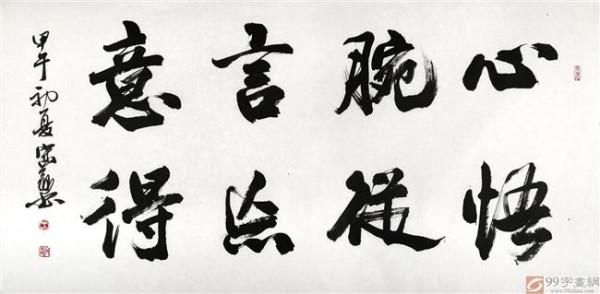 心悟
腕從
言忘
意得
甲午初夏
99字畫網